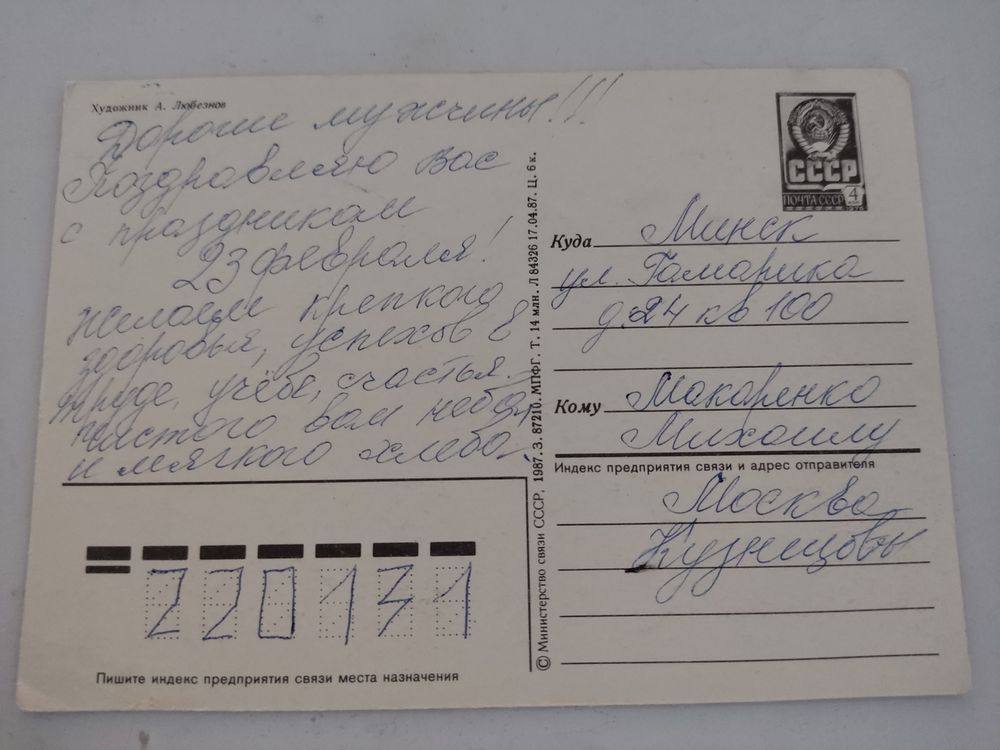 Художник А. Любезнов
Дорогие мужчины!!!
Поздравляю Вас
с праздникам
23 февраля!
Желаем крепкого
здоровья, успехов в
труде, учёбе, счастья.
чистого вам неба,
и мягкого хлеба.
220131
Пишите индекс предприятия связи места назначения
© Министерство связи СССР, 1987. З. 87210. МПФГ. Т. 14 млн. Л 84326 17.04.87. Ц. 6 к.
СССР
ПОЧТА СССР 4
1976
Куда Минск
ул. Гамарника
д. 24 кв 100
Кому Макаренко
Михаилу
Индекс предприятия связи и адрес отправителя
Москва
Кузнецовы